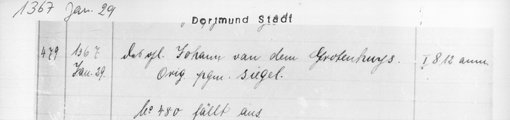 1367 Jan. 29
Dortmund Stadt
479 1367 Jan. 29. Desgl. Johann van dem Grotenhuys. I 812 anm.
Orig. pgm. siegel.
No 480 fällt aus